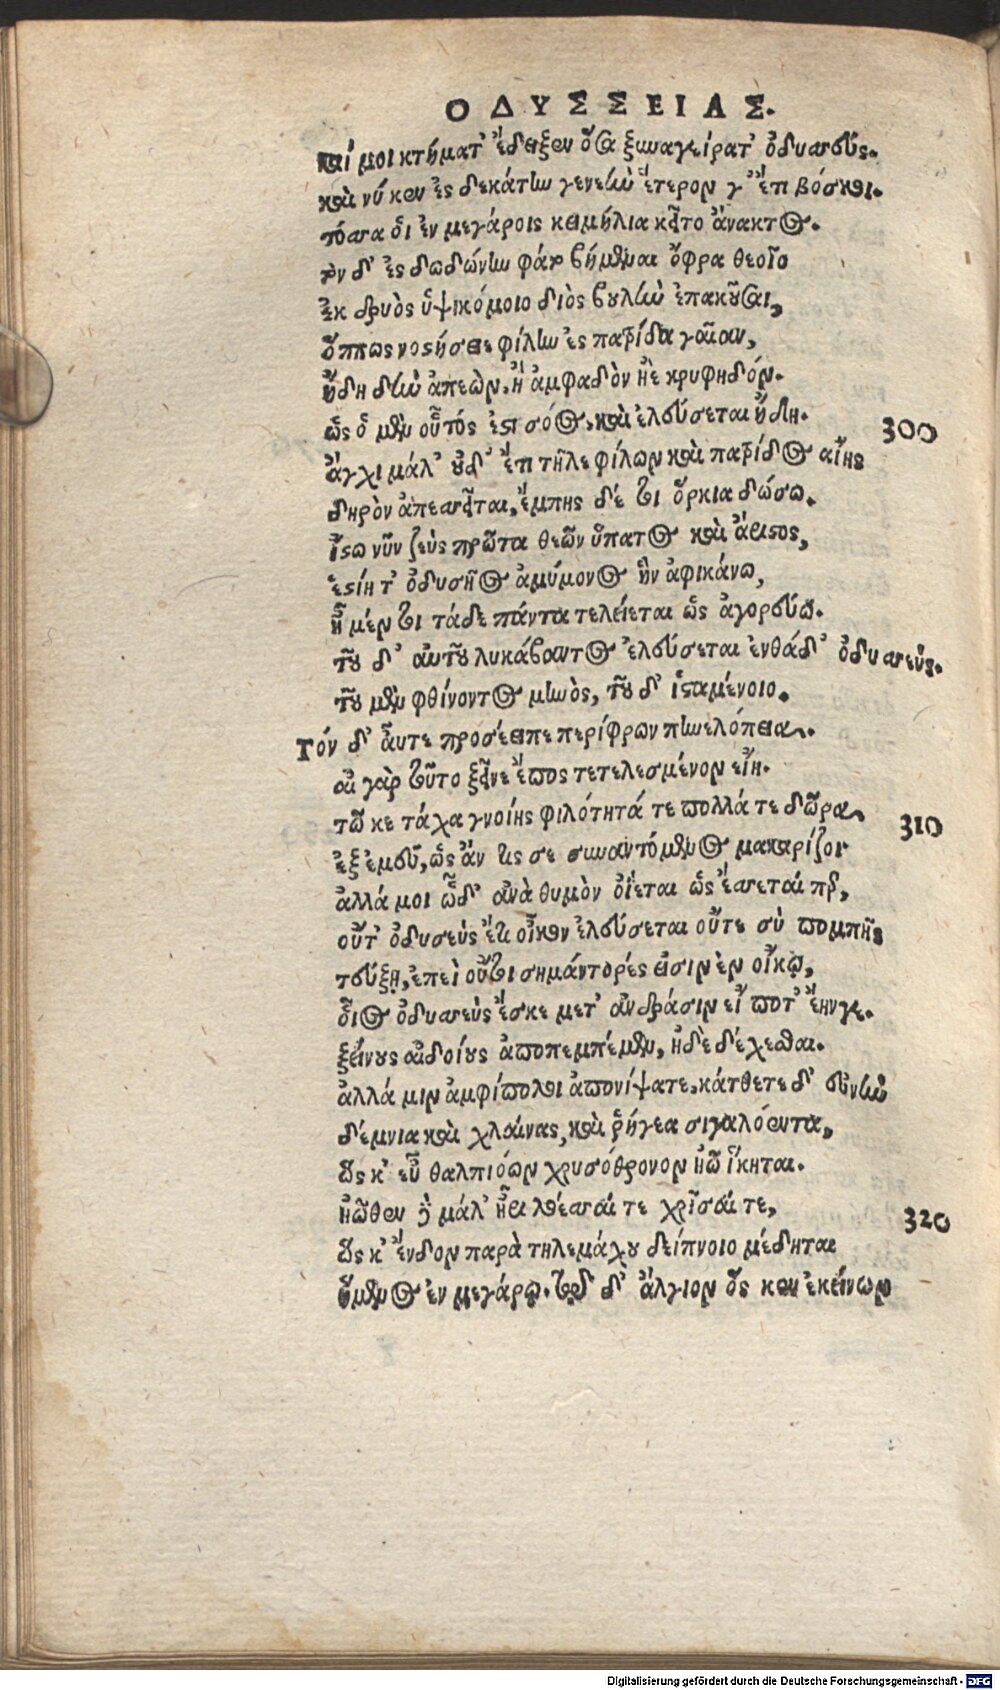 ΟΔΥΣΣΕΙΑΣ.
καί μοι κτήματ' ἔδειξεν ὅσα ξυναγείρατ' ὀδυσσεύς.
καὶ νύ κεν ἐς δεκάτην γενεὴν ἕτερον γ' ἔτι βόσκοι.
τόσσα οἱ ἐν μεγάροις κειμήλια κεῖτο ἄνακτος.
τὸν δ' ἐς δωδώνην φάτο βήμεναι ὄφρα θεοῖο
ἐκ δρυὸς ὑψικόμοιο διὸς βουλὴν ἐπακοῦσαι,
ὅππως νοστήσειε φίλην ἐς πατρίδα γαῖαν,
ἤδη δὴν ἀπεὼν. ἢ ἀμφαδὸν ἠὲ κρυφηδόν.
ὣς ὁ μὲν οὗτός ἐστι σόος, καὶ ἐλεύσεται ἤδη. 300
ἄγχι μάλ' οὐδ' ἔτι τῆλε φίλων καὶ πατρίδος αἴης
δηρὸν ἀπεσσεῖται, ἔμπης δέ τοι ὅρκια δώσω.
ἴστω νῦν ζεὺς πρῶτα θεῶν ὕπατος καὶ ἄριστος,
ἑστίη τ' ὀδυσῆος ἀμύμονος ἣν ἀφικάνω,
ἦ μέν τοι τάδε πάντα τελείεται ὡς ἀγορεύω.
τοῦ δ' αὐτοῦ λυκάβαντος ἐλεύσεται ἐνθάδ' ὀδυσσεύς.
τοῦ μὲν φθίνοντος μηνὸς, τοῦ δ' ἱσταμένοιο.
Τόν δ' αὖτε προσέειπε περίφρων πηνελόπεια.
αἲ γὰρ τοῦτο ξεῖνε ἔπος τετελεσμένον εἴη.
τῶ κε τάχα γνοίης φιλότητά τε πολλά τε δῶρα 310
ἐξ ἐμεῦ, ὡς ἄν τις σε συναντόμενος μακαρίζοι
ἀλλά μοι ὧδ' ἀνὰ θυμὸν ὀΐεται ὡς ἔσσεταί περ,
οὔτ' ὀδυσεὺς ἔτι οἶκον ἐλεύσεται οὔτε σὺ πομπῆς
τεύξῃ, ἐπεὶ οὔτοι σημάντορές εἰσιν ἐν οἴκῳ,
οἷος ὀδυσσεὺς ἔσκε μετ' ἀνδράσιν εἴ ποτ' ἔην γε.
ξείνους αἰδοίους ἀποπεμπέμεν, ἠδὲ δέχεσθαι.
ἀλλά μιν ἀμφίπολοι ἀπονίψατε, κάτθετε δ' εὐνὴν
δέμνια καὶ χλαίνας, καὶ ῥήγεα σιγαλόεντα,
ὥς κ' εὖ θαλπιόων χρυσόθρονον ἠῶ ἵκηται.
ἠῶθεν δὲ μάλ' ἦρι λοέσσαί τε χρῖσαί τε, 320
ὥς κ' ἔνδον παρὰ τηλεμάχου δείπνοιο μέδηται
ἥμενος ἐν μεγάρῳ. τῷ δ' ἄλγιον ὅς κεν ἐκείνων
Digitalisierung gefördert durch die Deutsche Forschungsgemeinschaft - DFG